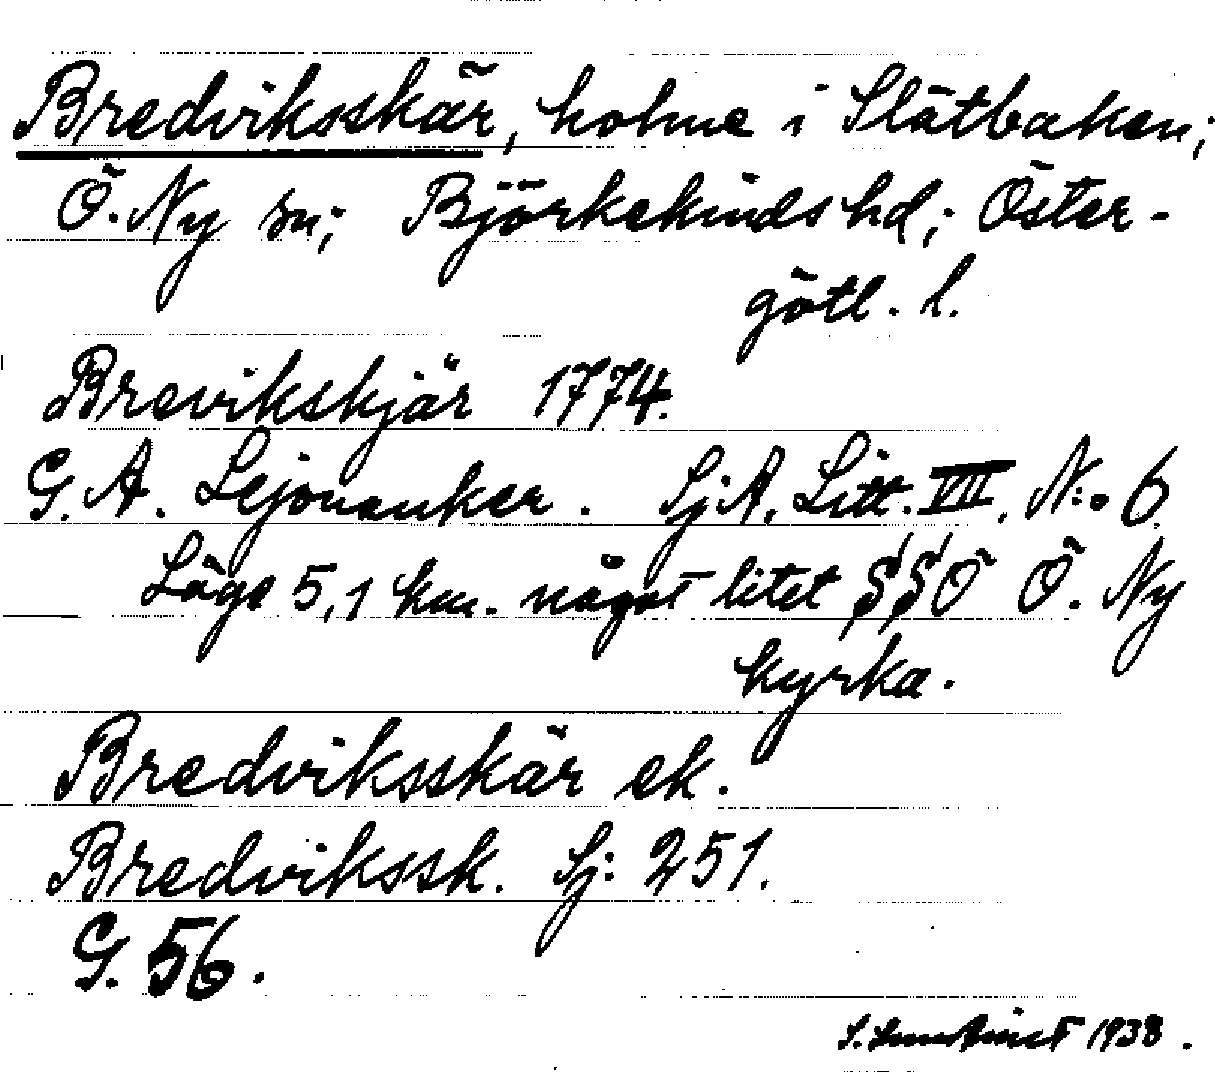 Bredviksskär, holme i Slätbaken;
Ö. Ny sn; Björkekinds hd; Öster-
götl. l.
Brevikskjär 1774.
G. A. Lejonanker. Sj.A. Litt. VII. N:o 6
Läge 5,1 km. något litet SSÖ Ö. Ny
kyrka.
Bredviksskär ek.
Bredvikssk. Sj: 251.
G. 56.
1938.